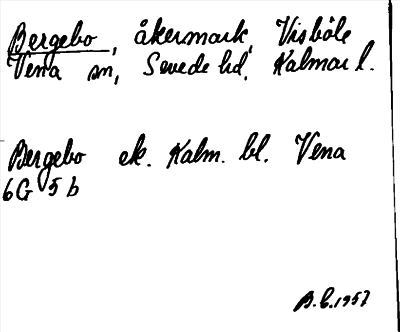 Bergebo, åkermark, Visböle
Vena sn, Sevede hd, Kalmar l.
Bergebo ek. Kalm. bl. Vena
6G 5 b
B.C. 1957